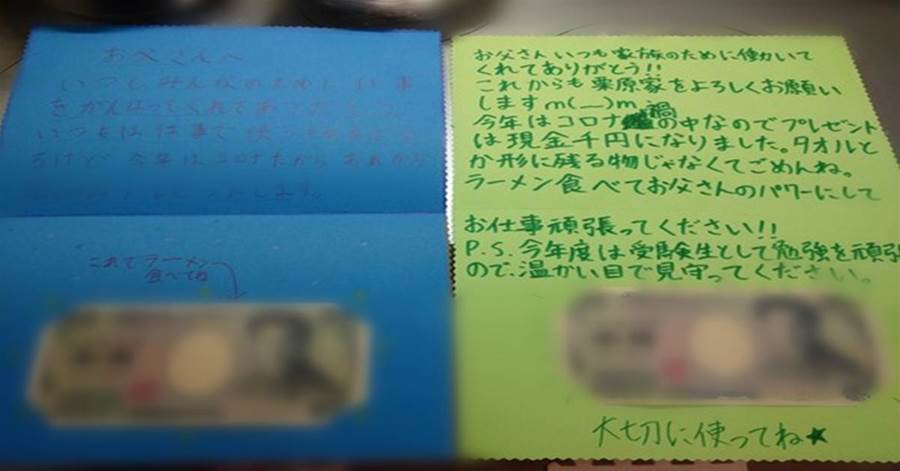 お父さんへ
いつもみんなのために仕事
をがんばってくれてありがとう
いつもは仕事で使うものあげて
るけど 今年はコロナだから
します。
これでラーメン
食べてね
お父さんいつも家族のために働いて
くれてありがとう!!
これからも栗原家をよろしくお願い
しますm(__)m
今年はコロナ禍の中なのでプレゼント
は現金千円になりました。タオルと
か形に残る物じゃなくてごめんね。
ラーメン食べてお父さんのパワーにして
お仕事頑張ってください!!
P.S.今年度は受験生として勉強を頑張
ので、温かい目で見守ってください。
大切に使ってね★